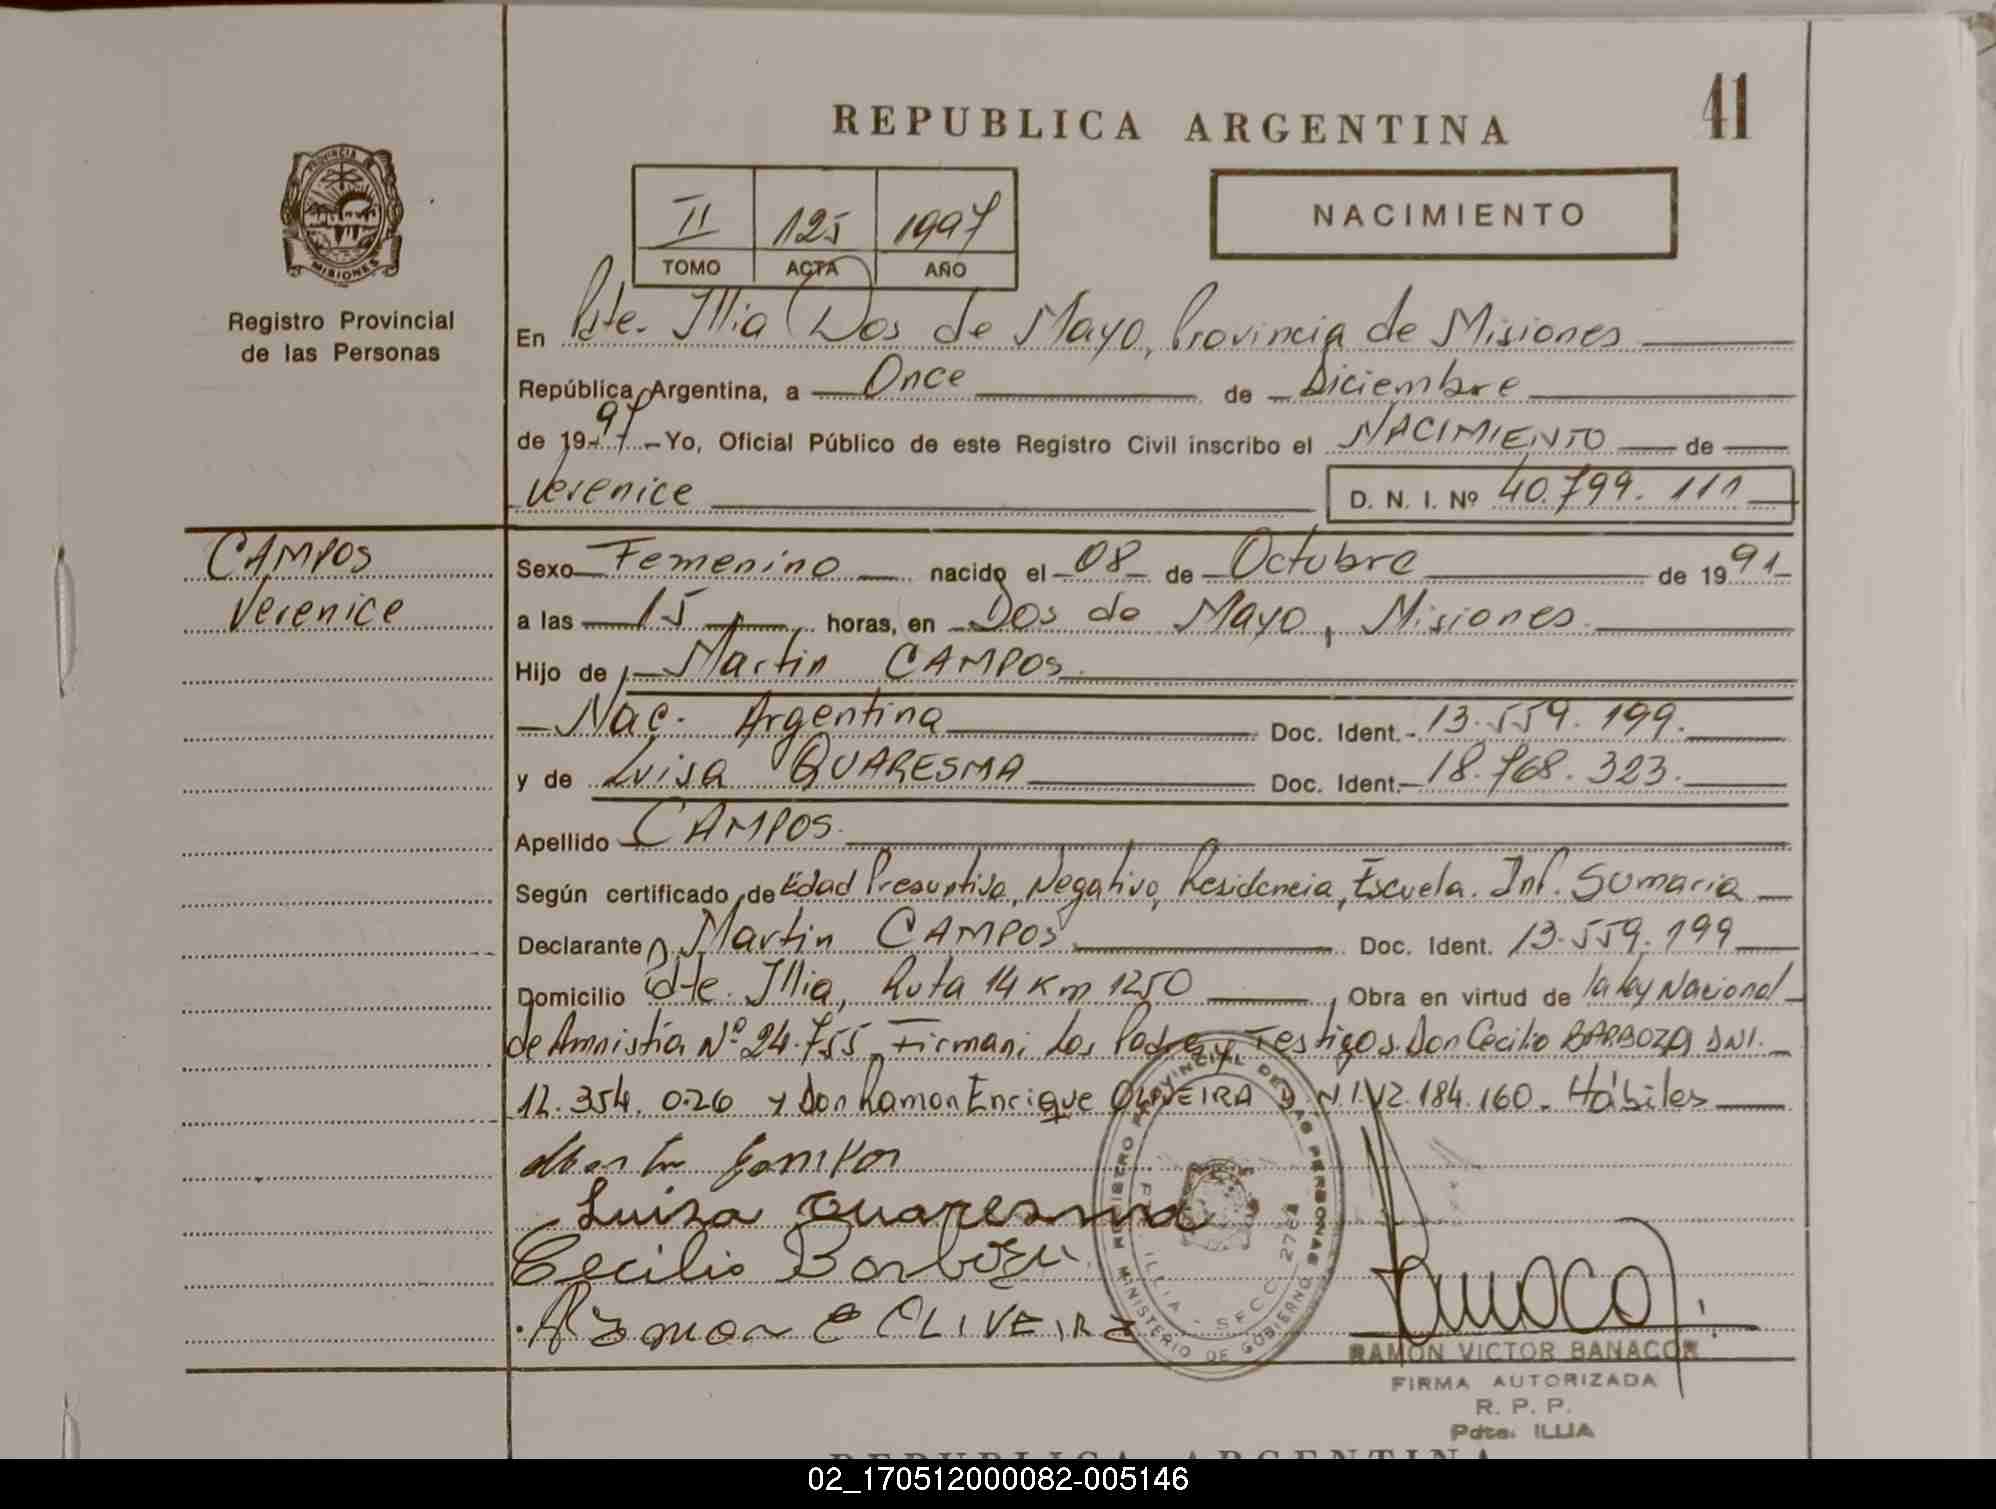 41
REPUBLICA ARGENTINA
PROVINCIA DE
MISIONES
Registro Provincial
de las Personas
II 125 1997
TOMO ACTA AÑO
NACIMIENTO
En Pdte. Illia Dos de Mayo, Provincia de Misiones
República Argentina, a Once de Diciembre
de 1997 - Yo, Oficial Público de este Registro Civil inscribo el NACIMIENTO de
Verenice D. N. I. Nº 40.799.111
CAMPOS
Verenice
Sexo Femenino nacido el 08 de Octubre de 1991
a las 15 horas, en Dos de Mayo, Misiones.
Hijo de Martin CAMPOS.
Nac. Argentina Doc. Ident. 13.559.199.
y de Luisa QUARESMA Doc. Ident. 18.768.323.
Apellido CAMPOS.
Según certificado de Edad Presuntiva, Negativo, Residencia, Escuela. Inf. Sumaria
Declarante Martin CAMPOS Doc. Ident. 13.559.199
Domicilio Pdte. Illia, Ruta 14 Km 1250, Obra en virtud de la Ley Nacional
de Amnistía Nº 24.755. Firman: Los Padres y Testigos Don Cecilio BARBOZA DNI.
12.354.026 y Don Ramon Enrique OLIVEIRA D.N.I. 12.184.160. Hábiles
Luiza Quaresma
Cecilio Barboza
Ramon E OLIVEIRA
REGISTRO PROVINCIAL DE LAS PERSONAS
MINISTERIO DE GOBIERNO
ILLIA - SECC.
RAMON VICTOR BANACOR
FIRMA AUTORIZADA
R. P. P.
Pdte. ILLIA
REPUBLICA ARGENTINA
02_170512000082-005146